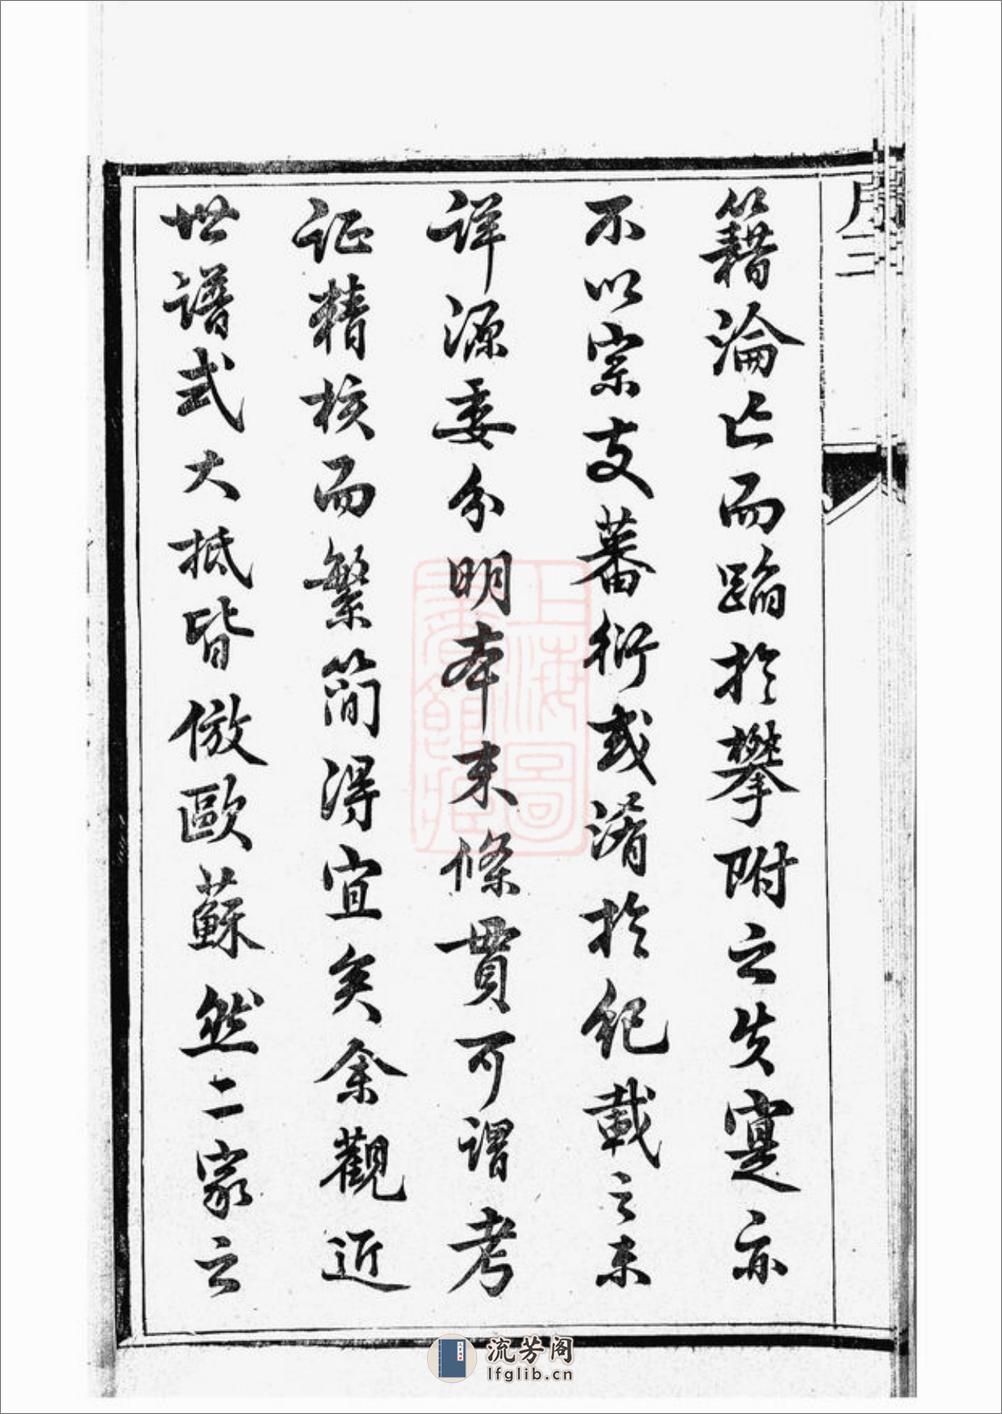 序三
籍淪亡而蹈於攀附之失寔亦
不以宗支蕃衍或淆於紀載之未
詳源委分明本末條貫可謂考
証精核而繁簡得宜矣余觀近
世譜式大抵皆倣歐蘇然二家之
上海圖
書館藏
流芳阁
lfglib.cn